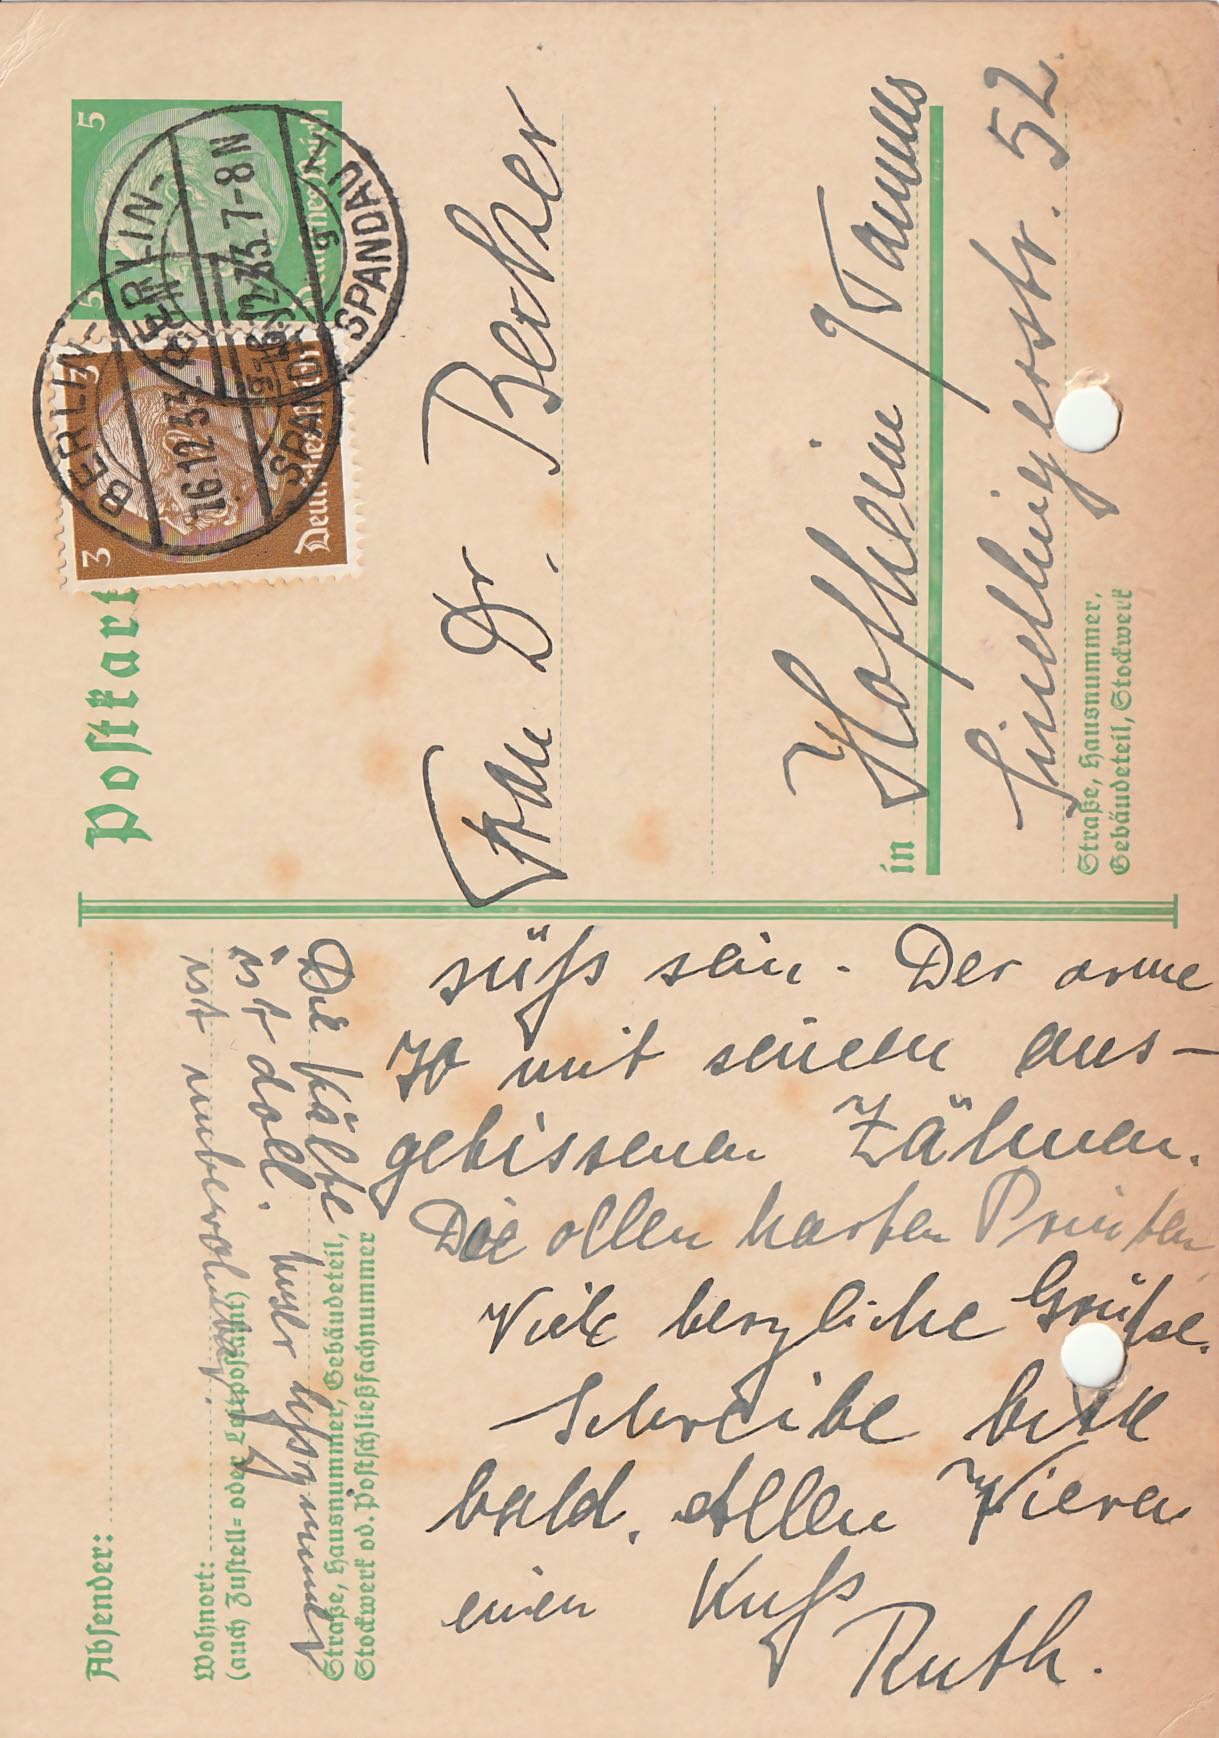 Postkarte
5
5
Deutsches Reich
3
3
Deutsches Reich
BERLIN-
SPANDAU
16.12.33. 7-8N
BERLIN-
SPANDAU
16.12.33.
Frau Dr. Becker
in Hofheim / Taunus
Sindlingerstr. 52.
Straße, Hausnummer,
Gebäudeteil, Stockwerk
Absender:
Wohnort:
(auch Zustell- oder Leitpostamt)
Straße, Hausnummer, Gebäudeteil,
Stockwerk od. Postschließfachnummer
süß sein. Der arme
Jo mit seinen aus-
gebissenen Zähnen.
Die ollen harten Printen
Viele herzliche Grüße.
Schreibe bitte
bald. Allen Vieren
einen Kuß
Ruth.
Die Kälte
ist doll. Unser
ist unbewohnbar.